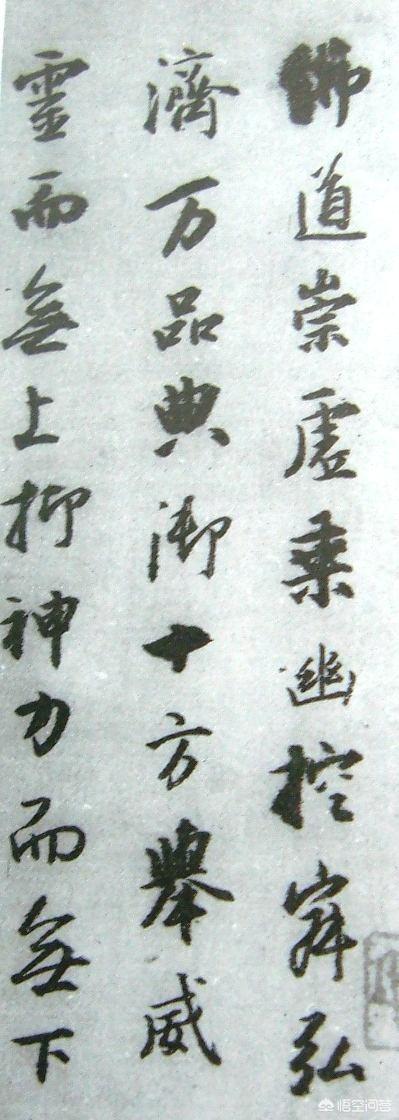 佛道崇虛乗幽控寂弘
濟万品典御十方舉威
靈而無上抑神力而無下
悟空问答